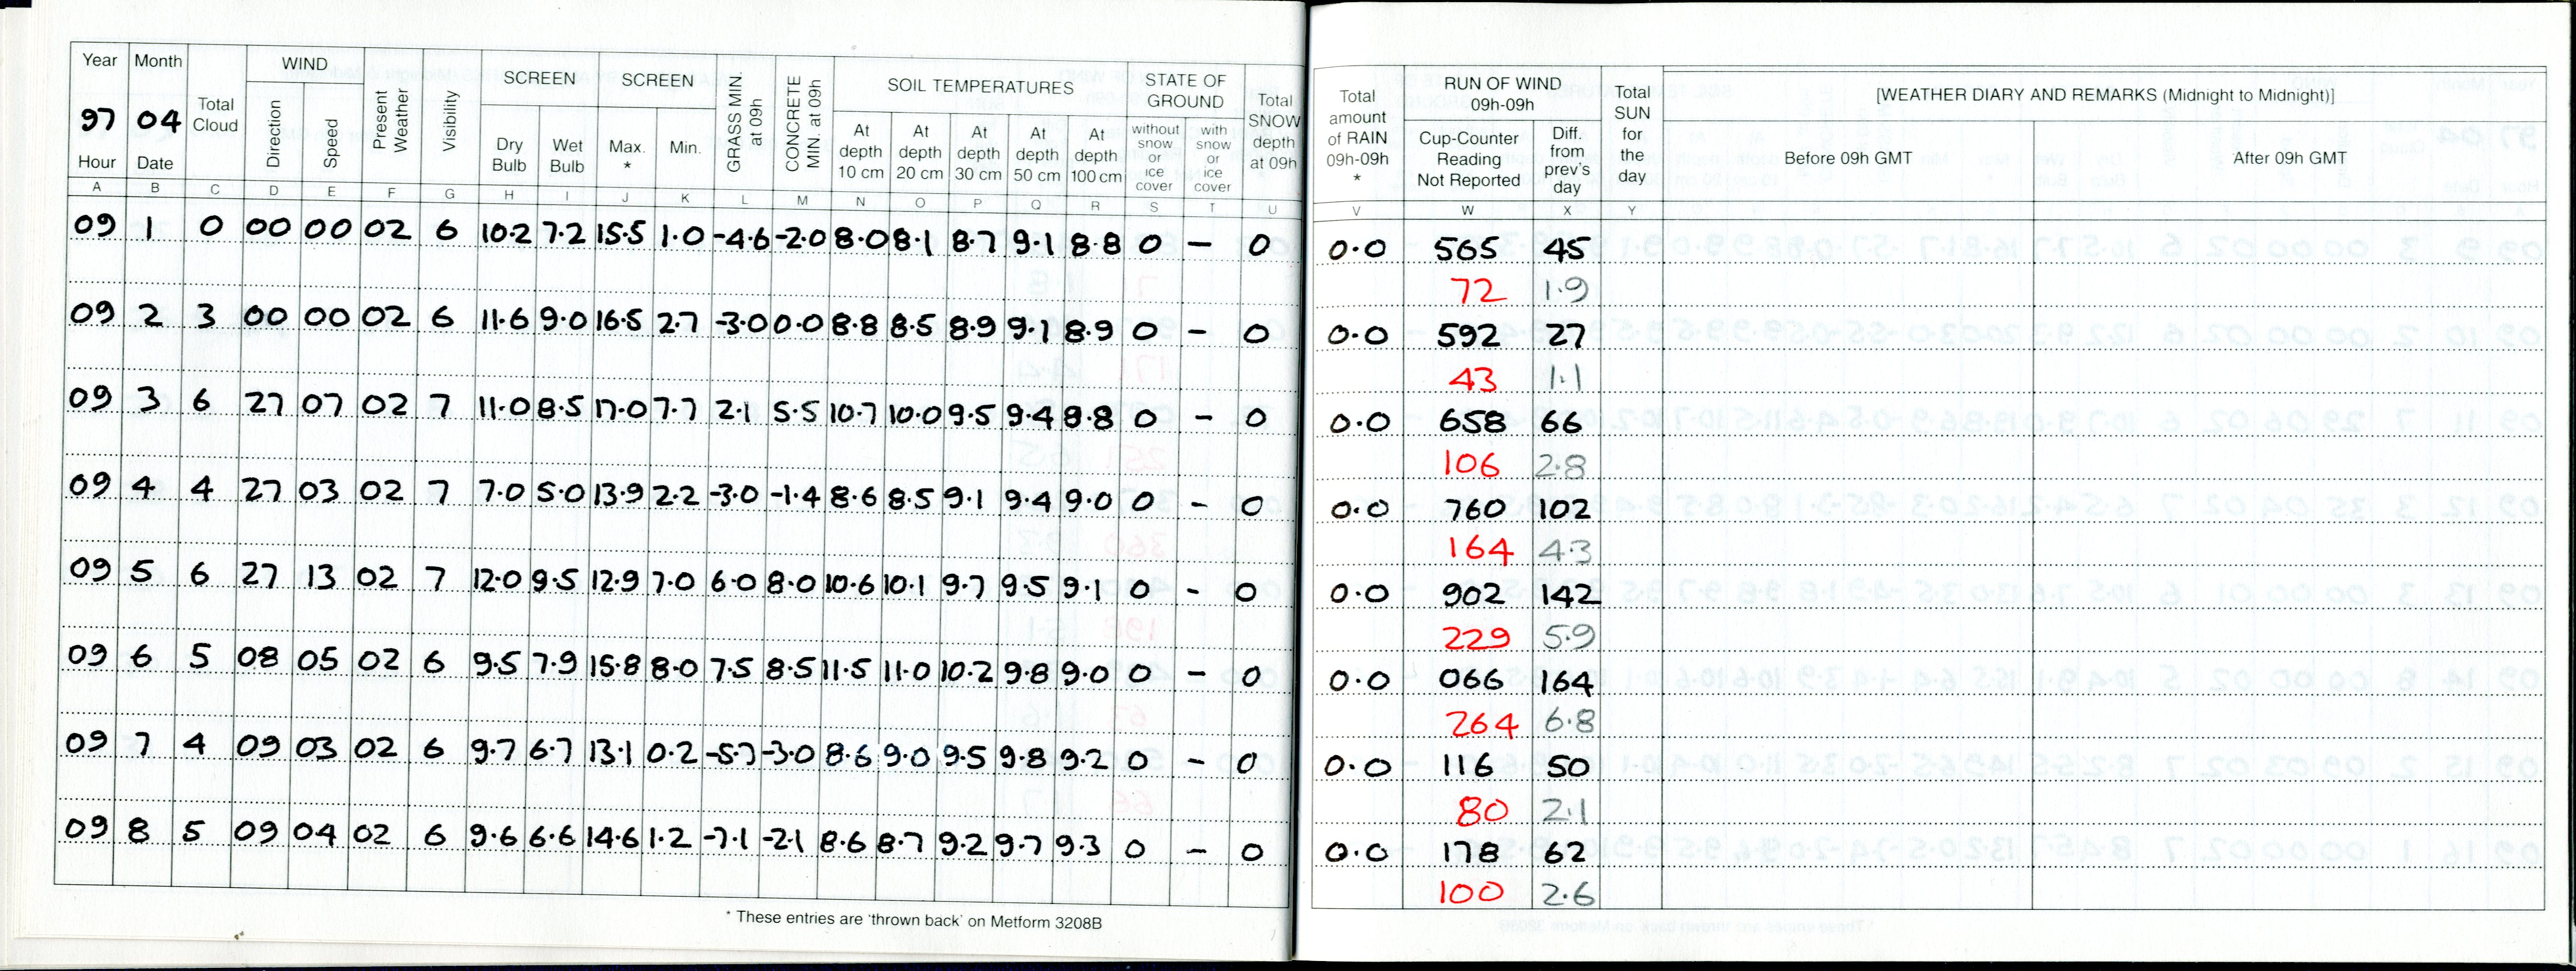 Year Month WIND SCREEN SCREEN SOIL TEMPERATURES STATE OF GROUND
97 04 Total Cloud Direction Speed Present Weather Visibility Dry Bulb Wet Bulb Max. * Min. GRASS MIN. at 09h CONCRETE MIN. at 09h At depth 10 cm At depth 20 cm At depth 30 cm At depth 50 cm At depth 100 cm without snow or ice cover with snow or ice cover Total SNOW depth at 09h
Hour Date
A B C D E F G H I J K L M N O P Q R S T U
09 1 0 00 00 02 6 10.2 7.2 15.5 1.0 -4.6 -2.0 8.0 8.1 8.7 9.1 8.8 0 - 0
09 2 3 00 00 02 6 11.6 9.0 16.5 2.7 -3.0 0.0 8.8 8.5 8.9 9.1 8.9 0 - 0
09 3 6 27 07 02 7 11.0 8.5 17.0 7.7 2.1 5.5 10.7 10.0 9.5 9.4 8.8 0 - 0
09 4 4 27 03 02 7 7.0 5.0 13.9 2.2 -3.0 -1.4 8.6 8.5 9.1 9.4 9.0 0 - 0
09 5 6 27 13 02 7 12.0 9.5 12.9 7.0 6.0 8.0 10.6 10.1 9.7 9.5 9.1 0 - 0
09 6 5 08 05 02 6 9.5 7.9 15.8 8.0 7.5 8.5 11.5 11.0 10.2 9.8 9.0 0 - 0
09 7 4 09 03 02 6 9.7 6.7 13.1 0.2 -5.7 -3.0 8.6 9.0 9.5 9.8 9.2 0 - 0
09 8 5 09 04 02 6 9.6 6.6 14.6 1.2 -7.1 -2.1 8.6 8.7 9.2 9.7 9.3 0 - 0
* These entries are 'thrown back' on Metform 3208B
Total amount of RAIN 09h-09h * RUN OF WIND 09h-09h Cup-Counter Reading Not Reported Diff. from prev's day Total SUN for the day [WEATHER DIARY AND REMARKS (Midnight to Midnight)]
Before 09h GMT After 09h GMT
V W X Y
0.0 565 45
72 1.9
0.0 592 27
43 1.1
0.0 658 66
106 2.8
0.0 760 102
164 4.3
0.0 902 142
229 5.9
0.0 066 164
264 6.8
0.0 116 50
80 2.1
0.0 178 62
100 2.6